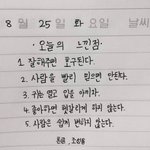 8 월 25 일 화 요일 날씨
오늘의 느낀점
1 잘해주면 호구된다.
2. 사람을 빨리 믿으면 안된다.
3. 귀는 열고 입을 아끼자.
4. 좋아하면 헷갈리게 하지 않는다.
5. 사람은 쉽게 변하지 않는다.